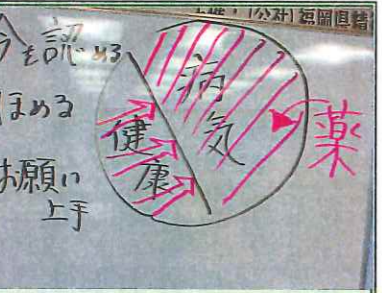 (公社)福岡県精
今を認める
ほめる
お願い
上手
病気
健康
薬